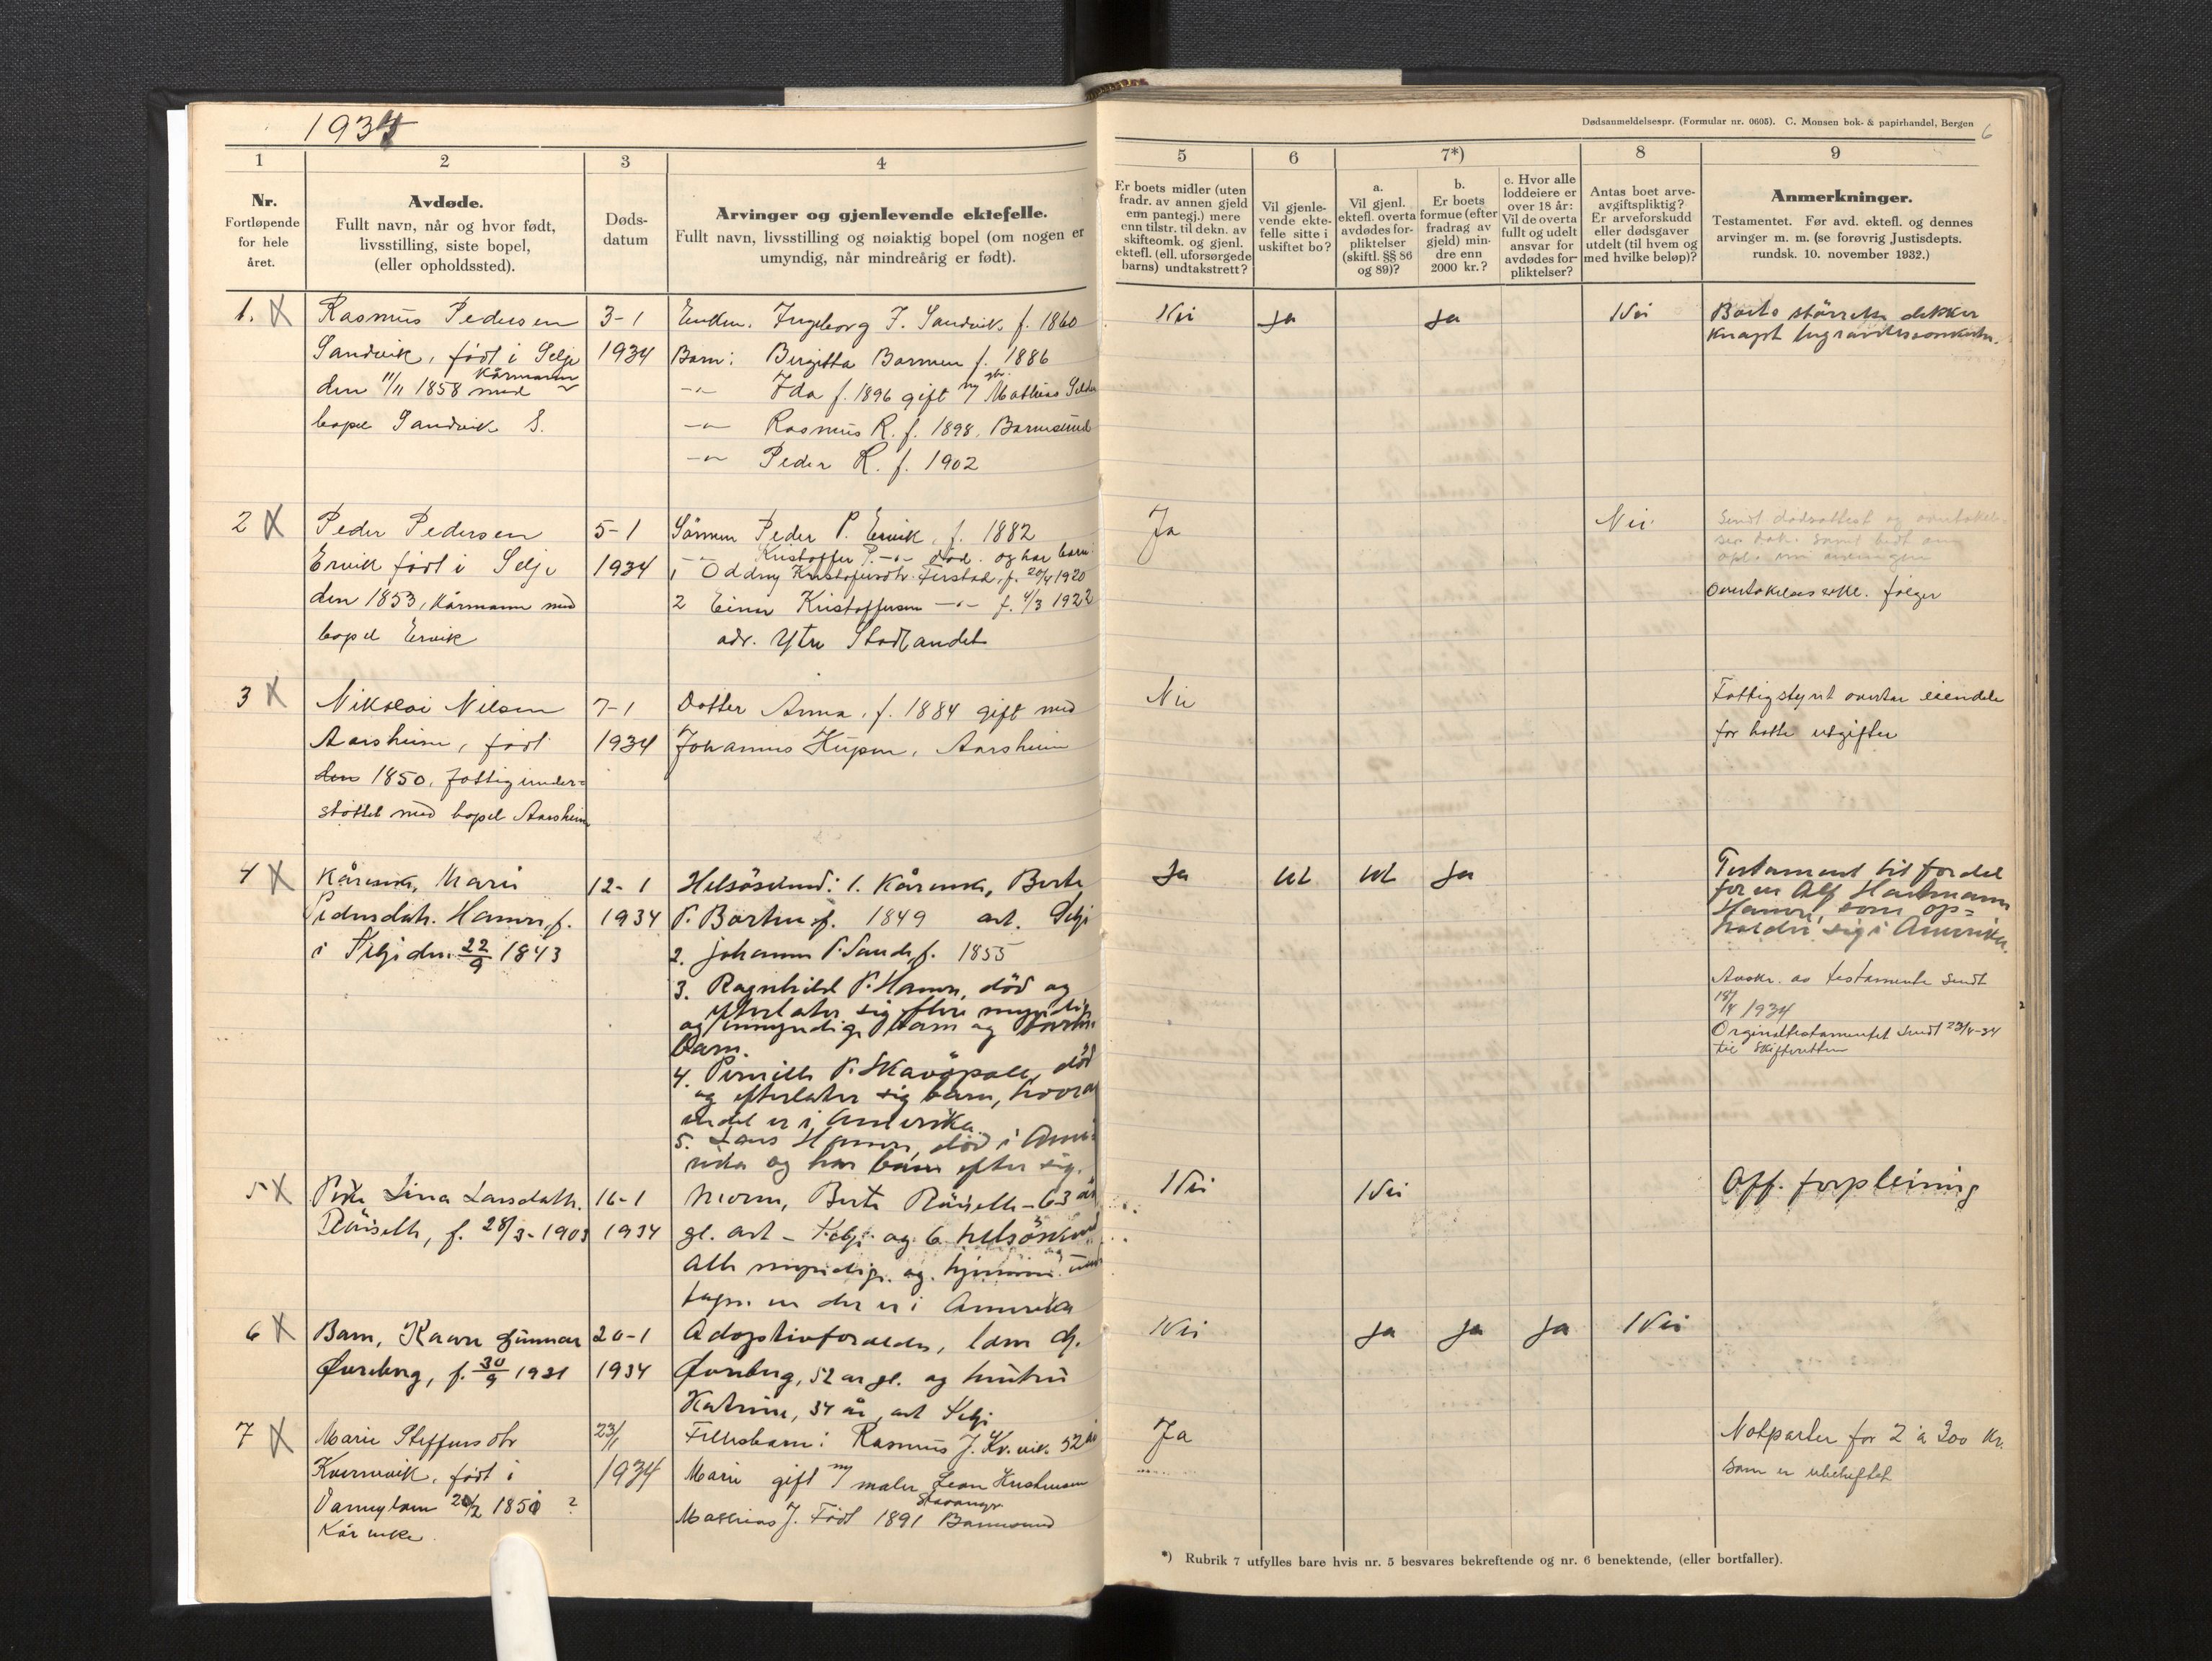 1934
Dødsanmeldelsespr. (Formular nr. 0605). C. Monsen bok- & papirhandel, Bergen
6
1
2
3
4
5
6
7*)
8
9
Nr.
Fortløpende
for hele
året.
Avdøde.
Fullt navn, når og hvor født,
livsstilling, siste bopel,
(eller opholdssted).
Døds-
datum
Arvinger og gjenlevende ektefelle.
Fullt navn, livsstilling og nøiaktig bopel (om nogen er
umyndig, når mindreårig er født).
Er boets midler (uten
fradr. av annen gjeld
enn pantegj.) mere
enn tilstr. til dekn. av
skifteomk. og gjenl.
ektefl. (ell. uforsørgede
barns) undtakstrett?
Vil gjenle-
vende ekte-
felle sitte i
uskiftet bo?
a.
Vil gjenl.
ektefl. overta
avdødes for-
pliktelser
(skiftl. §§ 86
og 89)?
b.
Er boets
formue (efter
fradrag av
gjeld) min-
dre enn
2000 kr.?
c. Hvor alle
loddeiere er
over 18 år:
Vil de overta
fullt og udelt
ansvar for
avdødes for-
pliktelser?
Antas boet arve-
avgiftspliktig?
Er arveforskudd
eller dødsgaver
utdelt (til hvem og
med hvilke beløp)?
Anmerkninger.
Testamentet. Før avd. ektefl. og dennes
arvinger m. m. (se forøvrig Justisdepts.
rundsk. 10. november 1932.)
1. X
Rasmus Pedersen
Sandvik, født i Selje
Kårmann
den 11/11 1858 med
bopel Sandvik S.
3-1
1934
Enken. Ingeborg J. Sandvik f. 1860
Barn: Birgitta Barmen f. 1886
-"- Ida f. 1896 gift m/ gbr. Mathias Selde
-"- Rasmus R. f. 1898. Barmsund
-"- Peder R. f. 1902
Nei
Ja
Ja
Nei
Boets størrelse dekker
knapt begravelsesomkostn.
2 X
Peder Pedersen
Ervik født i Selje
den 1853, Kårmann med
bopel Ervik
5-1
1934
Sønnen Peder P. Ervik, f. 1882
-"- Kristoffer P. -"- død. og har barn:
1 Oddny Kristofersdtr. Ferstad, f. 20/4 1920
2 Einar Kristoffersen -"- f. 4/3 1922
adr. Ytre Stadlandet
Ja
Nei
Sendt dødsattest og overtakel-
ses dok. samt bedt om
opl. om arvingene
Overtakelses erkl. følger
3 X
Nikolai Nilsen
Aarsheim, født
den 1850, fattigunder-
støttet med bopel Aarsheim
7-1
1934
Datter Anna, f. 1884 gift med
Johannes Hupen, Aarsheim
Nei
Fattigstyret overtar eiendele
for hatte utgifter
4 X
Kårenke, Mari
Pedersdatr. Hamre, f.
i Selje den 22/9 1843
12-1
1934
Helsøskend: 1. Kårenke, Berte
P. Børtne f. 1849 adr. Selje
2. Johanne P. Sande, f. 1855
3. Ragnhild P. Hamre, død og
efterlater sig flere myndige
og umyndige barn og barne
barn.
4. Pernille P. Skavøpoll, død
og efterlater sig barn, hvorav
endel er i Amerika.
5. Lars Hamre, død i Ame-
rika og har barn efter sig.
Ja
Ja
Testament til fordel
for en Alf Hartmann
Hamre, som op-
holder sig i Amerika.
Avskr. av testamente sendt
18/4 1934
Orginaltestamentet sendt 23/4-34
til Skifteretten
5 X
Pike Lina Larsdatr.
f. 28/3-1903
16-1
1934
moren, Berte - 63 år
gl. adr - Selje og 6 helsøsken
Alle myndige og hjemme und-
tagen en der er i Amerika
Nei
Nei
Off. forpleining
6 X
Barn, Kaare Gunnar
Øvreberg, f. 30/9 1931
20-1
1934
Adoptivforældre,
Øvreberg, 52 år gl. og hustru
Katrine, 34 år, adr Selje
Nei
Ja
Ja
Ja
Nei
7 X
Marie Steffensdtr
Kvernevik, født i
Vannylven 20/2 1850 ?
Kårenke.
23/1
1934
Fellesbarn: Rasmus J. Kv.vik. 52 år
Marie gift m/ maler
Stavanger
Mathias J. Født 1891 Barmsund
Ja
Notparter for 2 à 300 kr.
som er ubeheftet
*) Rubrik 7 utfylles bare hvis nr. 5 besvares bekreftende og nr. 6 benektende, (eller bortfaller).